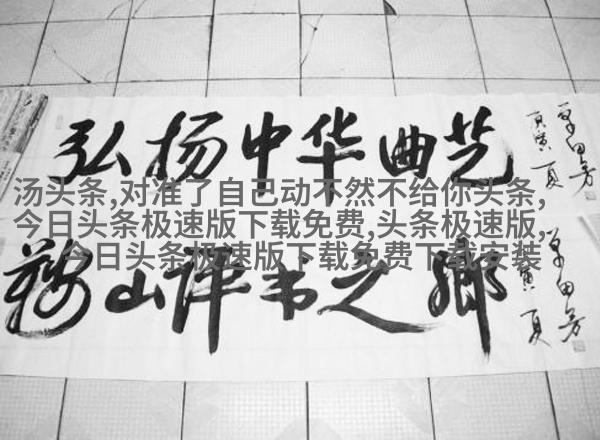 弘扬中华曲艺
庚寅 夏
单田芳
汤头条,对准了自己动不然不给你头条,
今日头条极速版下载免费,头条极速版,
今日头条极速版下载免费下载安装
鞍山评书之鄉
寅 夏
单田芳